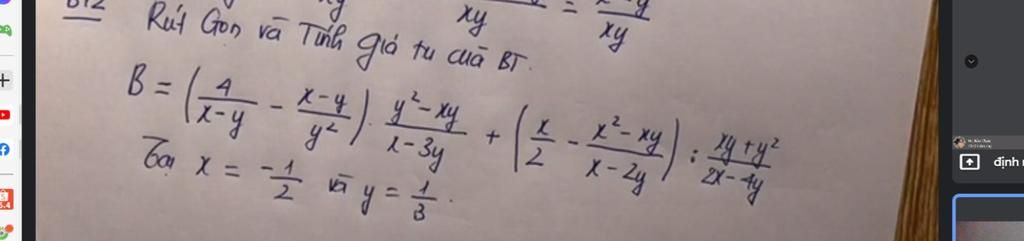 xy = x-y/xy
BT2 Rút Gọn và Tính giá trị của BT.
B = (4/x-y - x-y/y²) . y²-xy/x-3y + (x/2 - x²-xy/x-2y) : xy+y²/2x-4y
Tại x = -1/2 và y = 1/3.
định